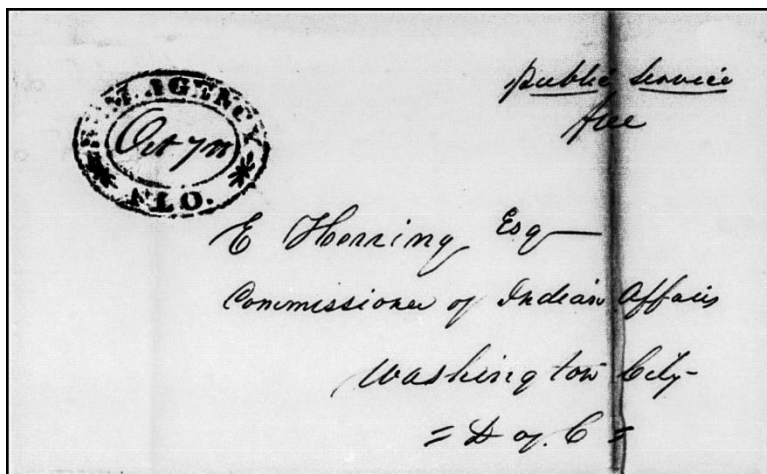 AGENCY
Oct 7th
FLO.
Public Service
free
E Herring Esq
Commissioner of Indian Affairs
Washington City
= D of. C =